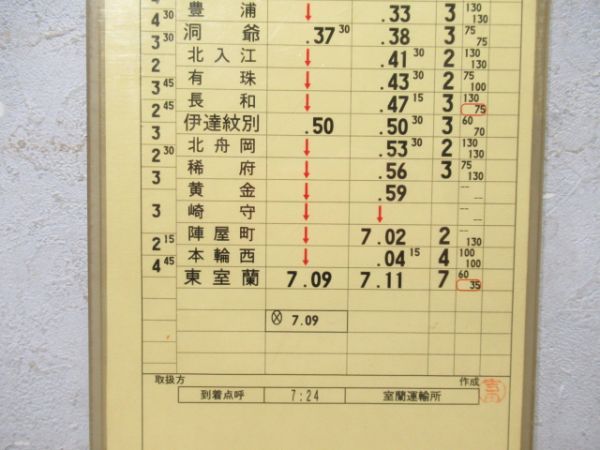 4 30 豊浦 ↓ .33 3 130 130
3 30 洞爺 .37 30 .38 3 75 75
2 北入江 ↓ .41 30 2 130 130
3 45 有珠 ↓ .43 30 2 75 100
2 45 長和 ↓ .47 15 3 130 75
3 伊達紋別 .50 .50 30 3 60 70
2 30 北舟岡 ↓ .53 30 2 130 130
3 稀府 ↓ .56 3 75 130
黄金 ↓ .59 -- --
3 崎守 ↓ ↓ -- --
2 15 陣屋町 ↓ 7.02 2 -- 130
4 45 本輪西 ↓ .04 15 4 100 100
東室蘭 7.09 7.11 7 60 35
Ⓧ 7.09
取扱方 作成
到着点呼 7:24 室蘭運輸所